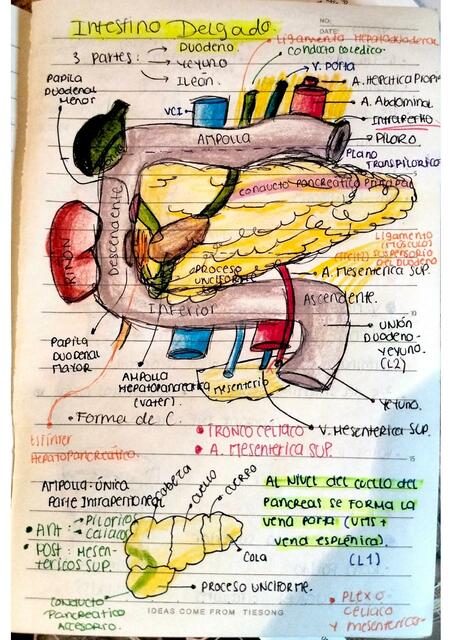 Intestino Delgado.
NO:
DATE:
3 partes:
Duodeno.
Yeyuno
Ileón.
Ligamento Hepatoduodenal
conducto colédoco.
V. Porta
A. Hepatica Propia
A. Abdominal.
Intraperito
Píloro
Plano
Transpilorico
Papila
Duodenal
Menor
VCI
AMPOLLA
conducto pancreático principal
Descendente
RIÑON
PROCESO
UNCIFORME
Ligamento
(músculo)
suspensorio
del Duodeno
A. Mesenterica Sup.
Ascendente.
Inferior
Unión
Duodeno-
Yeyuno.
(L2)
Papila
Duodenal
Mayor
Ampolla
Hepatopancreatica
(vater).
Mesenterio
Yeyuno.
• Forma de C.
V. Mesenterica Sup.
Esfinter
Hepatopancreático.
• Tronco Celiaco
• A. Mesenterica Sup.
Ampolla: única
Parte Intraperitoneal
cabeza
cuello
cuerpo
Al nivel del cuello del
pancreas se forma la
vena porta (VMS +
vena esplénica).
(L1)
• Ant:
Pilorico
Celiaco
• Post: Mesen-
tericos Sup.
Cola
Proceso Unciforme.
Conducto
Pancreatico
Accesorio.
IDEAS COME FROM TIESONG
• Plexo
Celiaco
y mesenterico